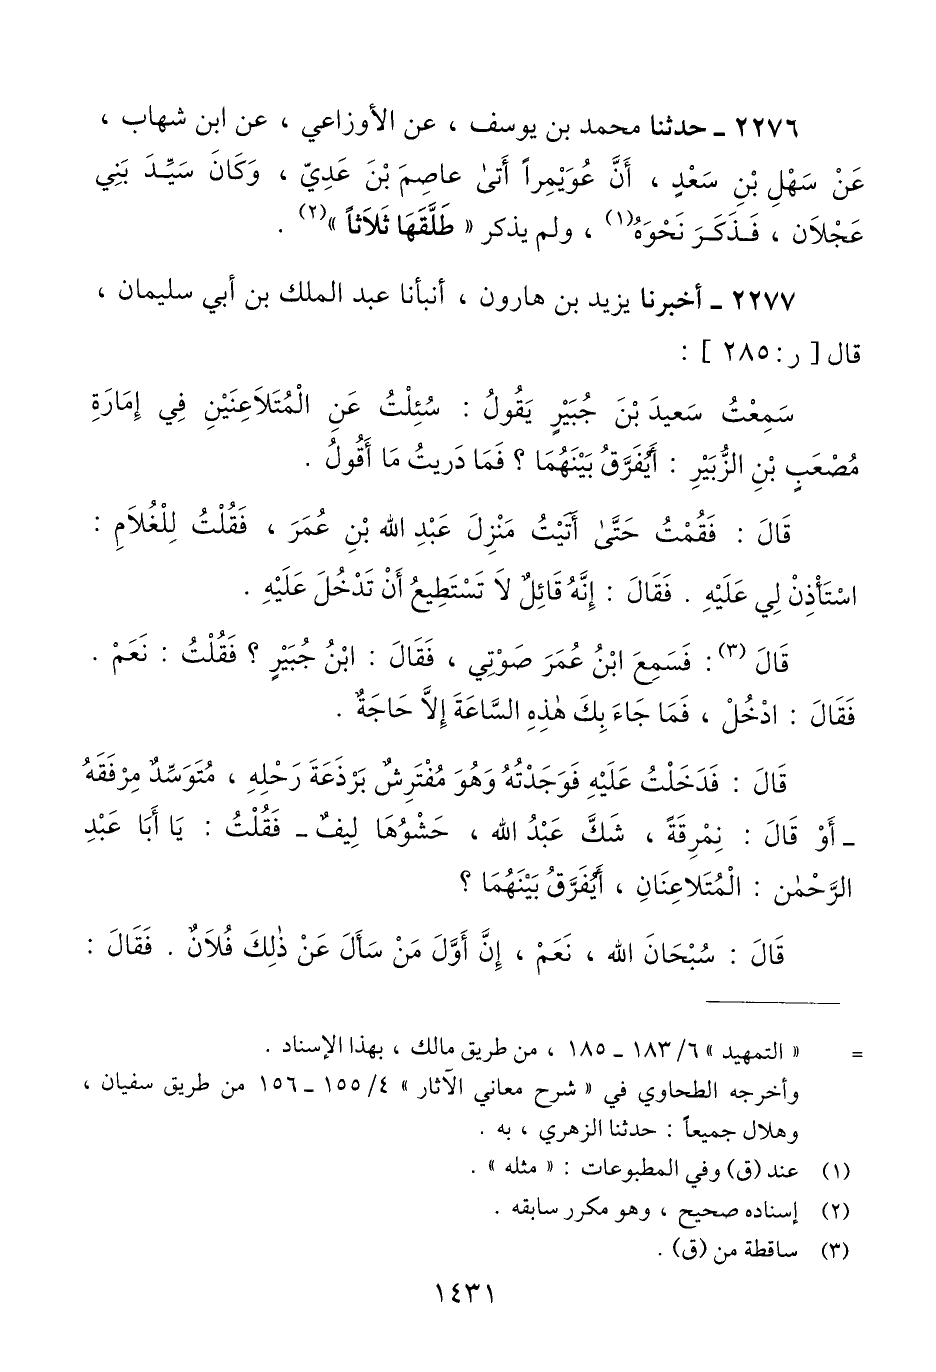 ٢٢٧٦ ـ حدثنا محمد بن يوسف ، عن الأوزاعي ، عن ابن شهاب ،
عَنْ سَهْلِ بْنِ سَعْدٍ ، أَنَّ عُوَيْمِراً أَتىٰ عاصِمَ بْنَ عَدِيّ ، وَكَانَ سَيِّدَ بَنِي
عَجْلَان ، فَذَكَرَ نَحْوَهُ(١) ، ولم يذكر « طَلَّقَهَا ثَلَاثاً »(٢) .
٢٢٧٧ ـ أخبرنا يزيد بن هارون ، أنبأنا عبد الملك بن أبي سليمان ،
قال [ ر : ٢٨٥ ] :
سَمِعْتُ سَعيدَ بْنَ جُبَيْرٍ يَقُولُ : سُئِلْتُ عَنِ الْمُتَلَاعِنَيْنِ فِي إِمَارَةِ
مُصْعَبِ بْنِ الزُّبَيْرِ : أَيُفَرَّقُ بَيْنَهُمَا ؟ فَمَا دَريتُ مَا أَقُولُ .
قَالَ : فَقُمْتُ حَتَّىٰ أَتَيْتُ مَنْزِلَ عَبْدِ الله بْنِ عُمَرَ ، فَقُلْتُ لِلْغُلَامِ :
اسْتَأْذِنْ لِي عَلَيْهِ . فَقَالَ : إِنَّهُ قَائِلٌ لَا تَسْتَطِيعُ أَنْ تَدْخُلَ عَلَيْهِ .
قَالَ (٣) : فَسَمِعَ ابْنُ عُمَرَ صَوْتِي ، فَقَالَ : ابْنُ جُبَيْرٍ ؟ فَقُلْتُ : نَعَمْ .
فَقَالَ : ادْخُلْ ، فَمَا جَاءَ بِكَ هٰذِهِ السَّاعَةَ إِلاَّ حَاجَةٌ .
قَالَ : فَدَخَلْتُ عَلَيْهِ فَوَجَدْتُهُ وَهُوَ مُفْتَرِشٌ بَرْذَعَةَ رَحْلِهِ ، مُتَوَسِّدٌ مِرْفَقَهُ
ـ أَوْ قَالَ : نِمْرِقَةً ، شَكَّ عَبْدُ الله ، حَشْوُهَا لِيفٌ ـ فَقُلْتُ : يَا أَبَا عَبْدِ
الرَّحْمٰن : الْمُتَلاعِنَانِ ، أَيُفَرَّقُ بَيْنَهُمَا ؟
قَالَ : سُبْحَانَ الله ، نَعَمْ ، إِنَّ أَوَّلَ مَنْ سَأَلَ عَنْ ذٰلِكَ فُلَانٌ . فَقَالَ :
= « التمهيد » ٦/ ١٨٣ ـ ١٨٥ ، من طريق مالك ، بهذا الإسناد .
وأخرجه الطحاوي في « شرح معاني الآثار » ٤/ ١٥٥ ـ ١٥٦ من طريق سفيان ،
وهلال جميعاً : حدثنا الزهري ، به .
(١) عند (ق) وفي المطبوعات : « مثله » .
(٢) إسناده صحيح ، وهو مكرر سابقه .
(٣) ساقطة من (ق) .
١٤٣١